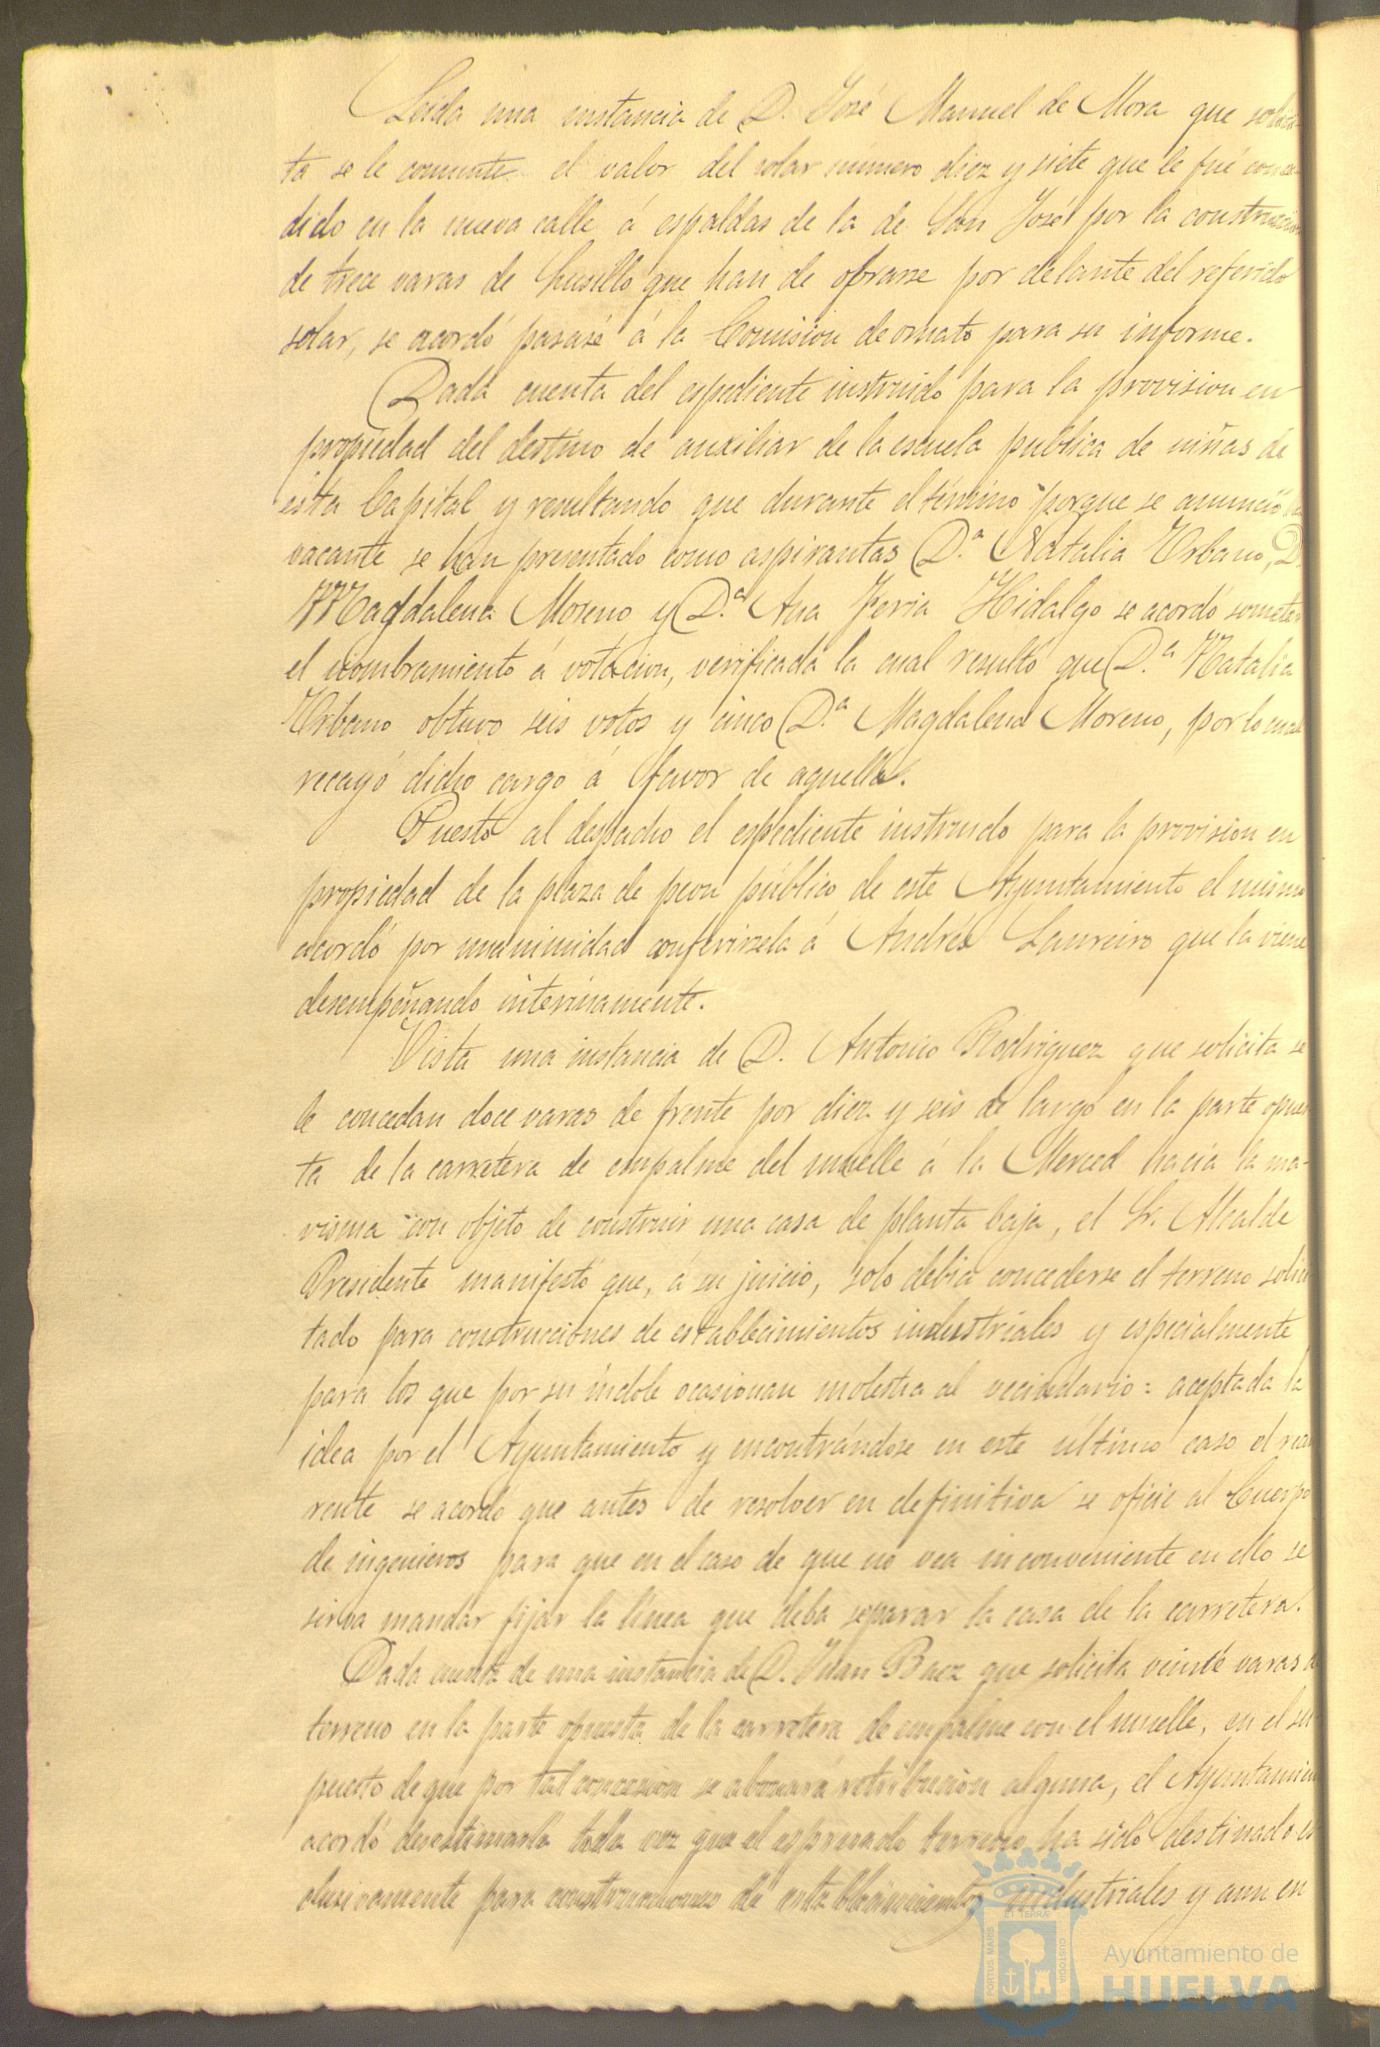 Leida una instancia de D. José Manuel de Mora que solici-
ta se le conmute el valor del solar número diez y siete que le fué conce-
dido en la nueva calle á espaldas de la de San José por la construccion
de trece varas de husillo que han de obrarse por delante del referido
solar, se acordó pasase á la Comision de ornato para su informe.
Dada cuenta del espediente instruido para la provision en
propiedad del destino de auxiliar de la escuela publica de niñas de
esta Capital y resultando que durante el término porque se anunció la
vacante se han presentado como aspirantas D.ª Natalia Urbano, D.
Magdalena Moreno y D.ª Ana Feria Hidalgo se acordó someter
el nombramiento á votacion, verificada la cual resultó que D.ª Natalia
Urbano obtuvo seis votos y cinco D.ª Magdalena Moreno, por lo cual
recayó dicho cargo á favor de aquella.
Puesto al despacho el espediente instruido para la provision en
propiedad de la plaza de peon público de este Ayuntamiento el mismo
acordó por unanimidad conferirsela á Andrés Laureiro que la viene
desempeñando interinamente.
Vista una instancia de D. Antonio Rodriguez que solicita se
le concedan doce varas de frente por diez y seis de largo en la parte opues
ta de la carretera de empalme del muelle á la Merced hacia la ma-
risma con objeto de construir una casa de planta baja, el Sr. Alcalde
Presidente manifestó que, á su juicio, solo debia concederse el terreno solici
tado para construcciones de establecimientos industriales y especialmente
para los que por su índole ocasionan molestia al vecindario = aceptada la
idea por el Ayuntamiento y encontrándose en este último caso el recu
rrente se acordó que antes de resolver en definitiva se oficie al Cuerpo
de ingenieros para que en el caso de que no vea inconveniente en ello se
sirva mandar fijar la línea que deba separar la casa de la carretera.
Dada cuenta de una instancia de D. Juan Baez que solicita veinte varas de
terreno en la parte opuesta de la carretera de empalme con el muelle, en el su-
puesto de que por tal concesion se abonará retribucion alguna, el Ayuntamien
acordó desestimarla toda vez que el espresado terreno ha sido destinado es
clusivamente para construcciones de establecimientos industriales y aun en
PORTUS MARIS
ET TERRÆ
CUSTODIA
Ayuntamiento de
HUELVA